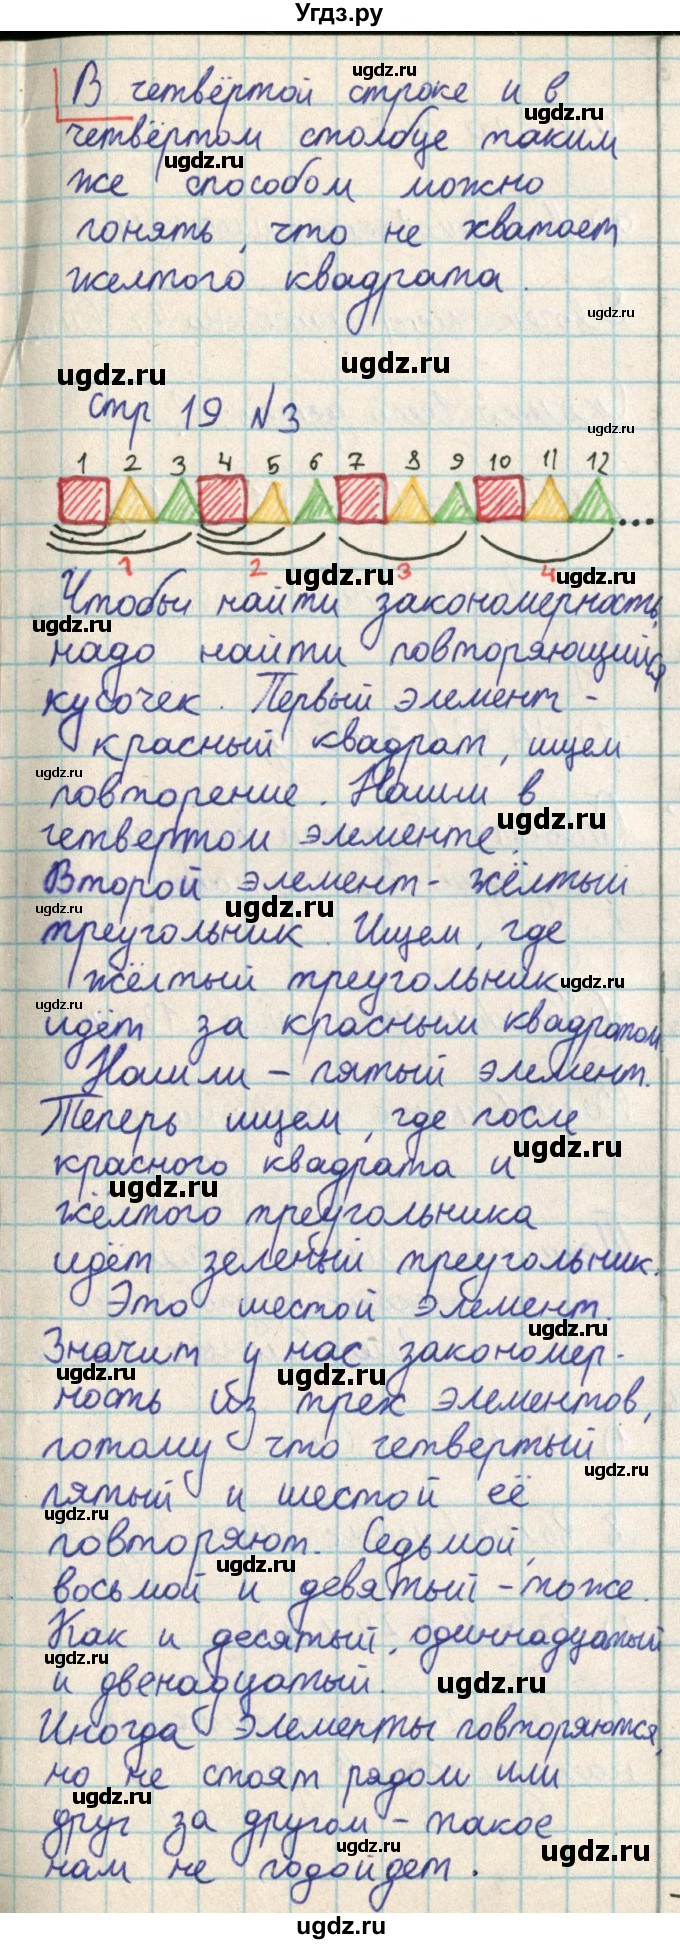 Угдз.ру
В четвёртой строке и в
четвёртом столбце таким
же способом можно
понять, что не хватает
желтого квадрата.
стр 19 №3
1 2 3 4 5 6 7 8 9 10 11 12
...
1 2 3 4
Чтобы найти закономерность,
надо найти повторяющийся
кусочек. Первый элемент -
красный квадрат, ищем
повторение. Нашли в
четвертом элементе.
Второй элемент - жёлтый
треугольник. Ищем, где
жёлтый треугольник
идёт за красным квадратом.
Нашли - пятый элемент.
Теперь ищем, где после
красного квадрата и
жёлтого треугольника
идёт зеленый треугольник.
Это шестой элемент.
Значит у нас закономер-
ность из трех элементов,
потому что четвертый
пятый и шестой её
повторяют. Седьмой,
восьмой и девятый - тоже.
Как и десятый, одиннадцатый
и двенадцатый.
Иногда элементы повторяются,
но не стоят рядом или
друг за другом - такое
нам не подойдет.
ugdz.ru